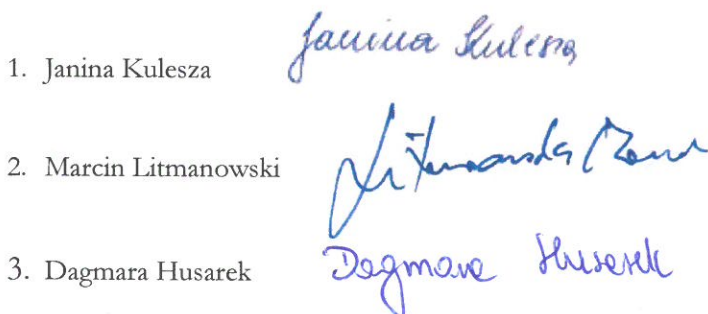 1. Janina Kulesza Janina Kulesza
2. Marcin Litmanowski Litmanowski Marcin
3. Dagmara Husarek Dagmara Husarek